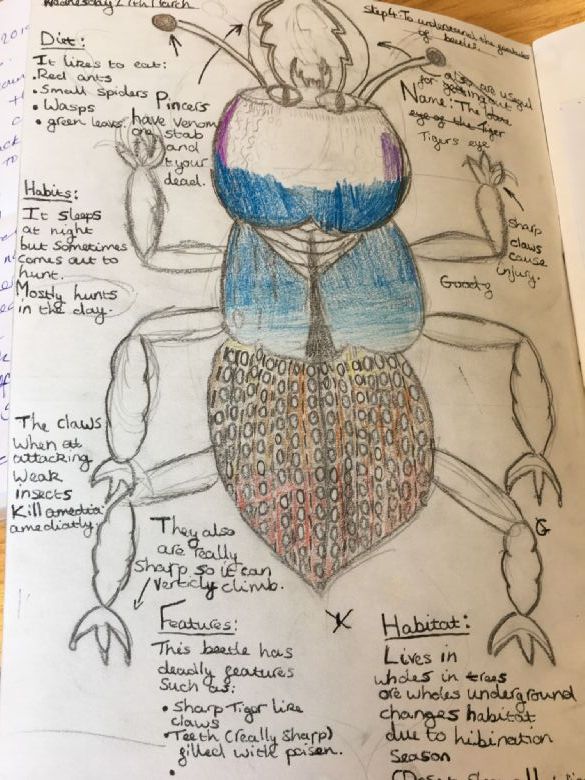 Wednesday 27th March
Step 4: To understand the features
of beetle.
Diet:
It likes to eat:
• Red ants
• Small spiders
• Wasps
• green leaves.
Pincers
have venom
stab
and
your
dead.
also are used
for
Name: The
eye of the Tiger
Tigers eye
Habits:
It sleeps
at night
but sometimes
comes out to
hunt.
Mostly hunts
in the day.
sharp
claws
cause
injury.
Good
The claws
when at
attacking
weak
insects
Kill amedia
amediatly.
They also
are really
sharp so it can
verticly climb.
G
Features:
This beetle has
deadly features
Such as:
• Sharp Tiger like
claws
• Teeth (really sharp)
filled with poisen.
•
Habitat:
Lives in
wholes in trees
ore wholes underground
changes habitat
due to hibination
Season